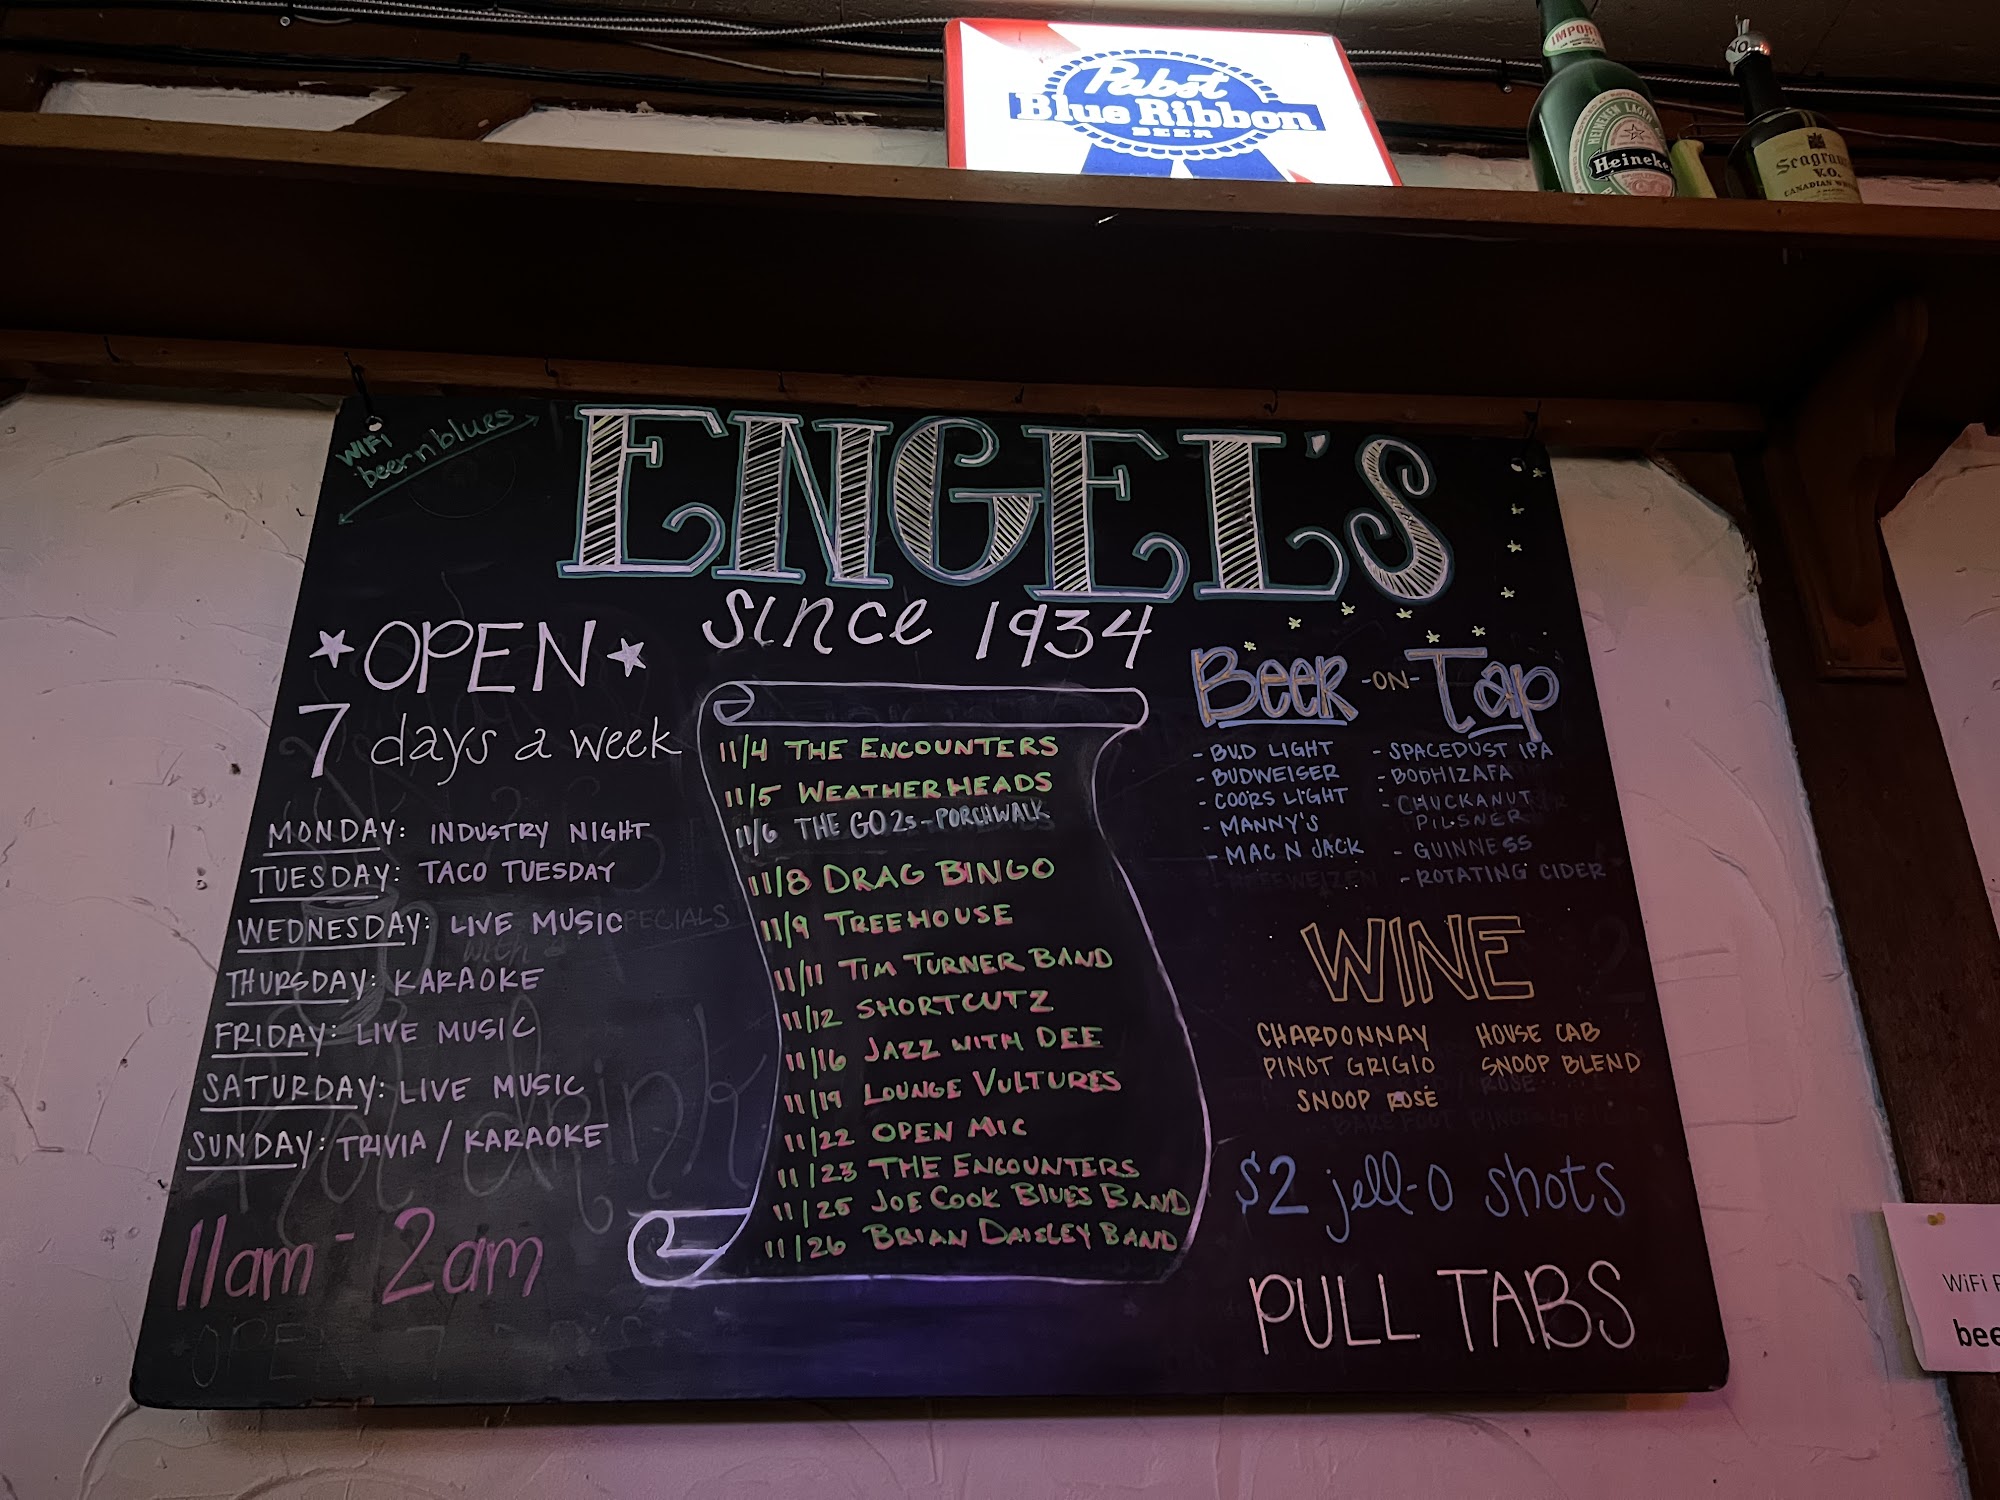 Pabst
Blue Ribbon
BEER
IMPORTED
HEINEKEN LAGER
Heineken
VO
Seagram's
V.O.
CANADIAN
WIFI
beernblues
ENGEL'S
since 1934
OPEN
7 days a week
MONDAY: INDUSTRY NIGHT
TUESDAY: TACO TUESDAY
WEDNESDAY: LIVE MUSIC
THURSDAY: KARAOKE
FRIDAY: LIVE MUSIC
SATURDAY: LIVE MUSIC
SUNDAY: TRIVIA / KARAOKE
11am - 2am
11/4 THE ENCOUNTERS
11/5 WEATHERHEADS
11/6 THE GO2s - PORCHWALK
11/8 DRAG BINGO
11/9 TREEHOUSE
11/11 TIM TURNER BAND
11/12 SHORTCUTZ
11/16 JAZZ WITH DEE
11/19 LOUNGE VULTURES
11/22 OPEN MIC
11/23 THE ENCOUNTERS
11/25 JOE COOK BLUES BAND
11/26 BRIAN DAISLEY BAND
Beer -ON- Tap
- BUD LIGHT
- BUDWEISER
- COORS LIGHT
- MANNY'S
- MAC N JACK
HEFEWEIZEN
- SPACEDUST IPA
- BODHIZAFA
- CHUCKANUT
PILSNER
- GUINNESS
- ROTATING CIDER
WINE
CHARDONNAY HOUSE CAB
PINOT GRIGIO SNOOP BLEND
SNOOP ROSE
$2 jell-o shots
PULL TABS
SPECIALS
with
hot drink
OPEN 7
ROSE
BAREFOOT
WiFi
bee